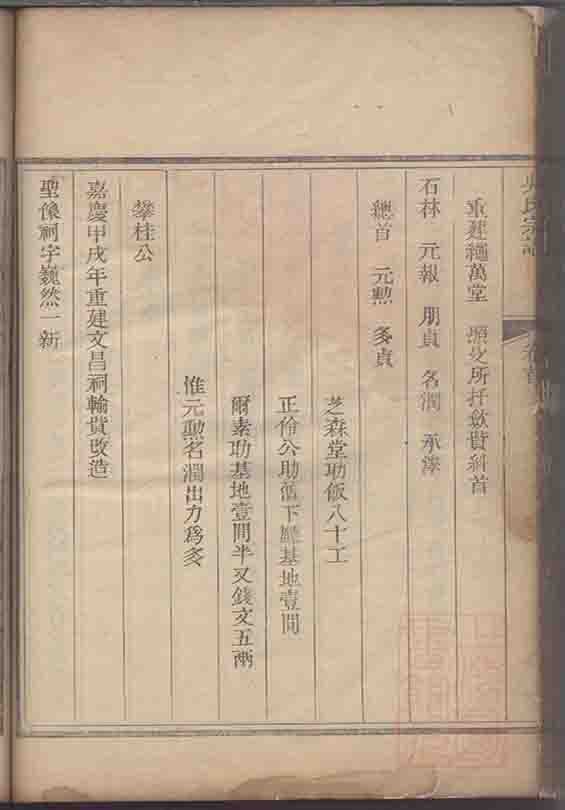 吳氏宗譜
卷首
重建繩萬堂 照丈所扦斂貲科首
石林 元報 朋貞 名潤 承澤
總首 元勲 多貞
芝森堂助飯八十工
正倫公助舊下廳基地壹間
爾素助基地壹間半又錢文五兩
惟元勲名潤出力為多
攀桂公
嘉慶甲戌年重建文昌祠輸貲改造
聖像祠宇巍然一新